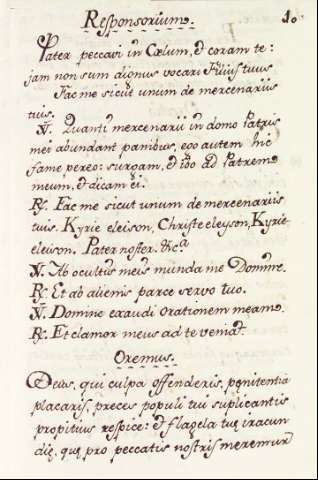 Responsorium. 10
Pater peccavi in Cœlum, & coram te:
jam non sum dignus vocari Filius tuus
Fac me sicut unum de mercenariis
tuis.
V. Quanti mercenarii in domo Patris
mei abundant panibus, ego autem hic
fame pereo: surgam, & ibo ad Patrem
meum, & dicam ei.
R. Fac me sicut unum de mercenariis
tuis. Kyrie eleison, Christe eleyson, Kyrie
eleison. Pater noster. &cª
V. Ab ocultis meis munda me Domine.
R. Et ab alienis parce servo tuo.
V. Domine exaudi orationem meam.
R. Et clamor meus ad te veniat.
Oremus.
Deus, qui culpa offenderis, pęnitentia
placaris, preces populi tui suplicantis
propitius respice: & flagela tuę iracun
dię, quę pro peccatis nostris meremur